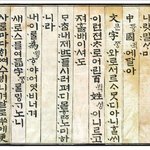 나랏말ᄊᆞ미
中國에달아
文字와로서르ᄉᆞᄆᆞᆺ디아니ᄒᆞᆯᄊᆡ
이런젼ᄎᆞ로어린百姓이니르고
져ᄒᆞᇙ배이셔도
ᄆᆞᄎᆞᆷ내제ᄠᅳ들시러펴디몯ᄒᆞᇙ노미하
니라
내이ᄅᆞᆯ爲ᄒᆞ야어엿비너겨
새로스믈여듧字ᄅᆞᆯᄆᆡᇰᄀᆞ노니
사ᄅᆞᆷ마다ᄒᆡᅇᅧ수ᄫᅵ니겨날로ᄡᅮ메